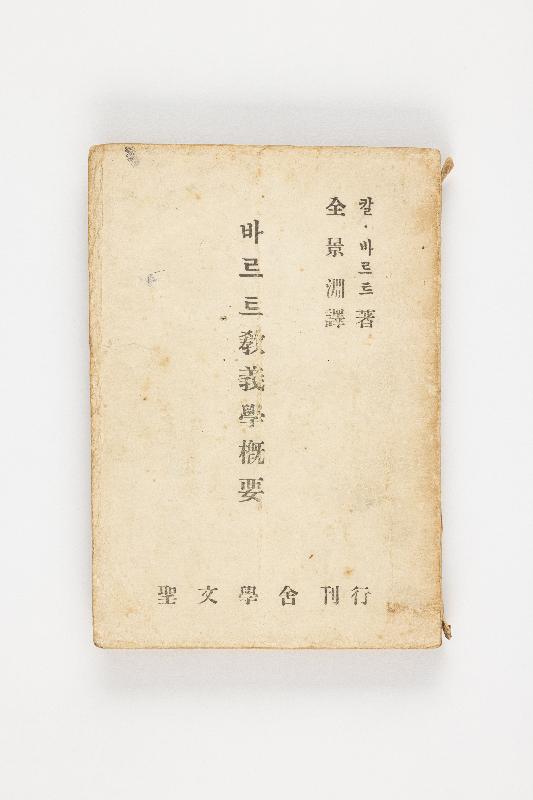 칼·바르트 著
全景淵 譯
바르트敎義學槪要
聖文學舍刊行